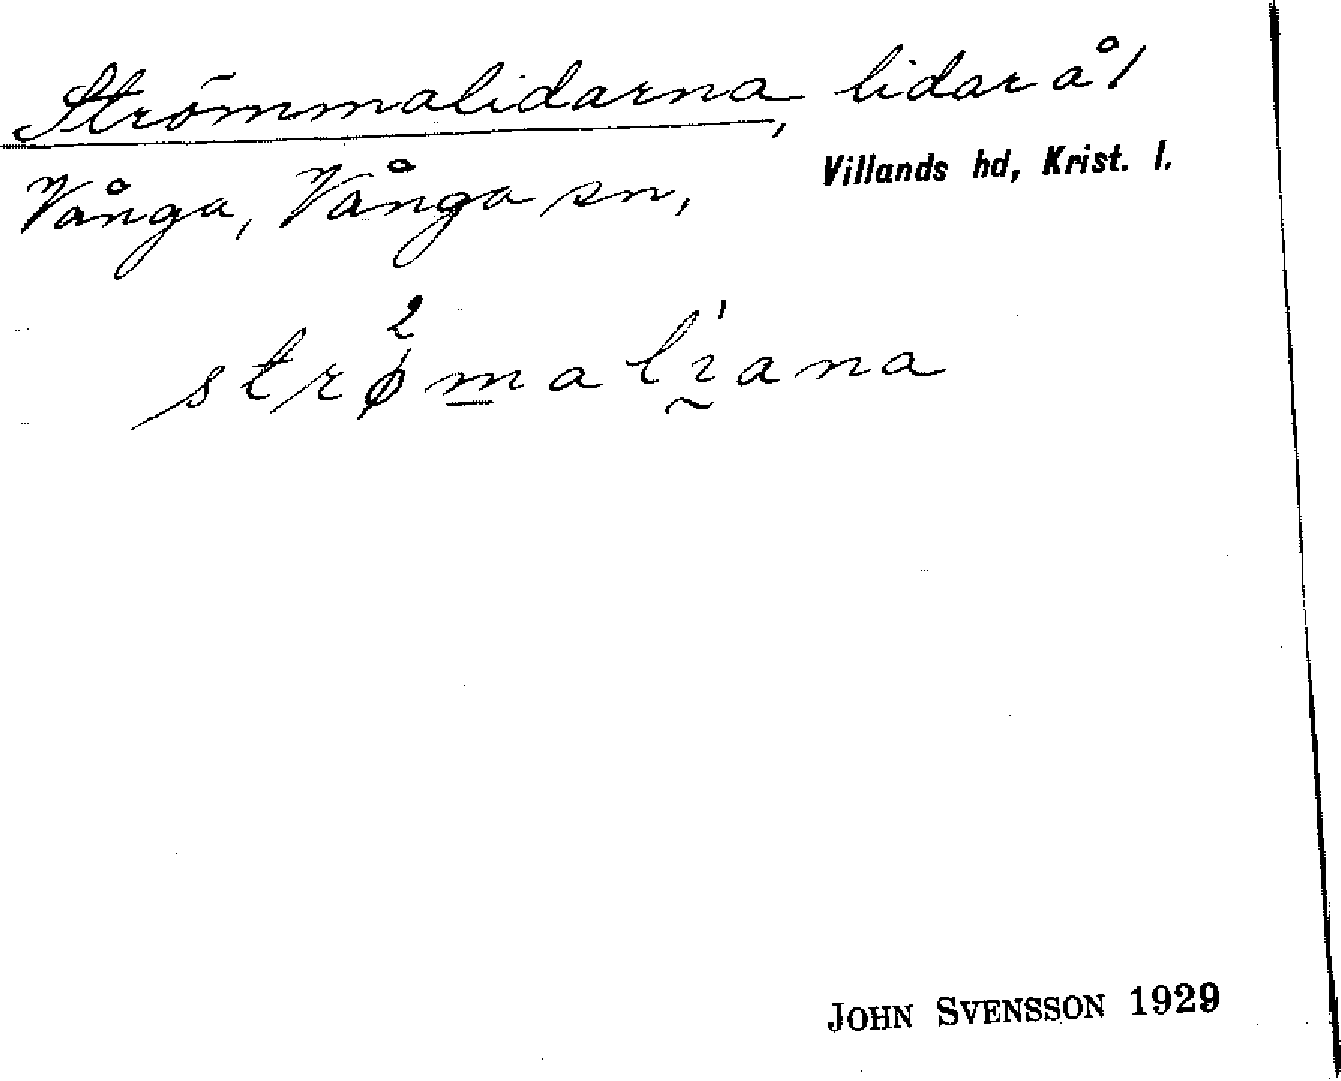 Strömmalidarna, lidar å
Villands hd, Krist. l.
Vånga, Vånga sn,
strømalıana
JOHN SVENSSON 1929